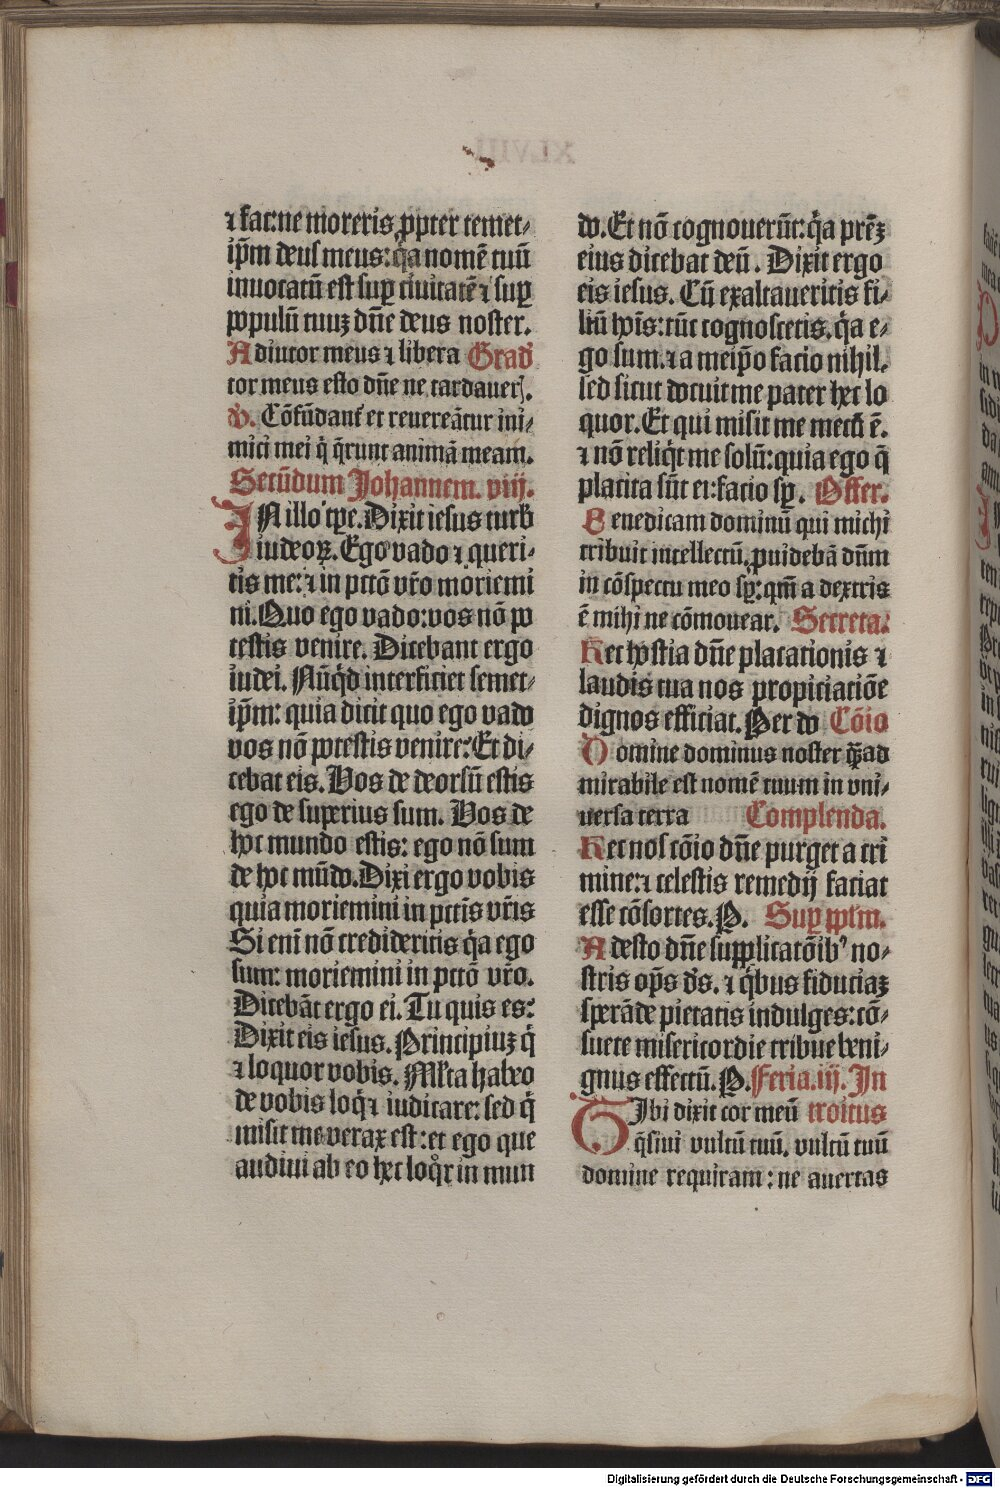 ⁊ fac:ne moreris ꝓpter temet⸗
ip̄m deus meus:q̇a nomē tuū
inuocatū est suꝑ ciuitatē ⁊ suꝑ
populū tuuꝫ dn̄e deus noster.
Adiutor meus ⁊ libera Grad̓
tor meus esto dn̄e ne tardauerꝭ.
V. Cōfūdant̉ et reuereātur ini⸗
mici mei q̇ q̄runt animā meam.
Secūdum Johannem. viij.
IN illo tꝑe. Dixit iesus turb̓
iudeoꝝ. Ego vado ⁊ queri⸗
tis me: ⁊ in pctō vr̄o moriemi
ni. Quo ego vado:vos nō po
testis venire. Dicebant ergo
iudei. Nūq̇d interficiet semet⸗
ip̄m: quia dicit quo ego vado
vos nō potestis venire: Et di⸗
cebat eis. Vos de deorsū estis
ego de superius sum. Vos de
hoc mundo estis: ego nō sum
de hoc mūdo. Dixi ergo vobis
quia moriemini in pctīs vr̄is
Si eni nō credideritis q̇a ego
sum: moriemini in pctō vr̄o.
Dicebāt ergo ei. Tu quis es:
Dixit eis iesus. Principiuꝫ q̇
⁊ loquor vobis. Ml̓ta habeo
de vobis loq̇ ⁊ iudicare: sed q̇
misit me verax est: et ego que
audiui ab eo hec loq̊r in mun
do. Et nō cognouerūt: q̇a prēꝫ
eius dicebat deū. Dixit ergo
eis iesus. Cū exaltaueritis fi⸗
liū hoīs: tūc cognoscetis. q̇a e⸗
go sum. ⁊ a meip̄o facio nihil.
sed sicut docuit me pater hec lo
quor. Et qui misit me mecū ē.
⁊ nō reliq̇t me solū: quia ego q̄
placita sūt ei: facio sꝑ. Offer.
Benedicam dominū qui michi
tribuit intellectū. ꝓuidebā dn̄m
in cōspectu meo sꝑ: qm̄ a dextris
ē mihi ne cōmouear. Secreta.
Hec hostia dn̄e placationis ⁊
laudis tua nos propiciatiōe
dignos efficiat. Per do Cōio
Domine dominus noster q̄ꝫ ad
mirabile est nomē tuum in vni⸗
uersa terra Complenda.
Hec nos cōio dn̄e purget a cri
mine: ⁊ celestis remedij faciat
esse cōsortes. P. Suꝑ ppl̓m.
Adesto dn̄e supplicatōib⁹ no⸗
stris op̄s ds̄. ⁊ q̇bus fiduciaꝫ
sperāde pietatis indulges: cō⸗
suete misericordie tribue beni⸗
gnus effectū. P. Feria. iij. In
TIbi dixit cor meū troitus
q̄siui vultū tuū. vultū tuū
domine requiram: ne auertas